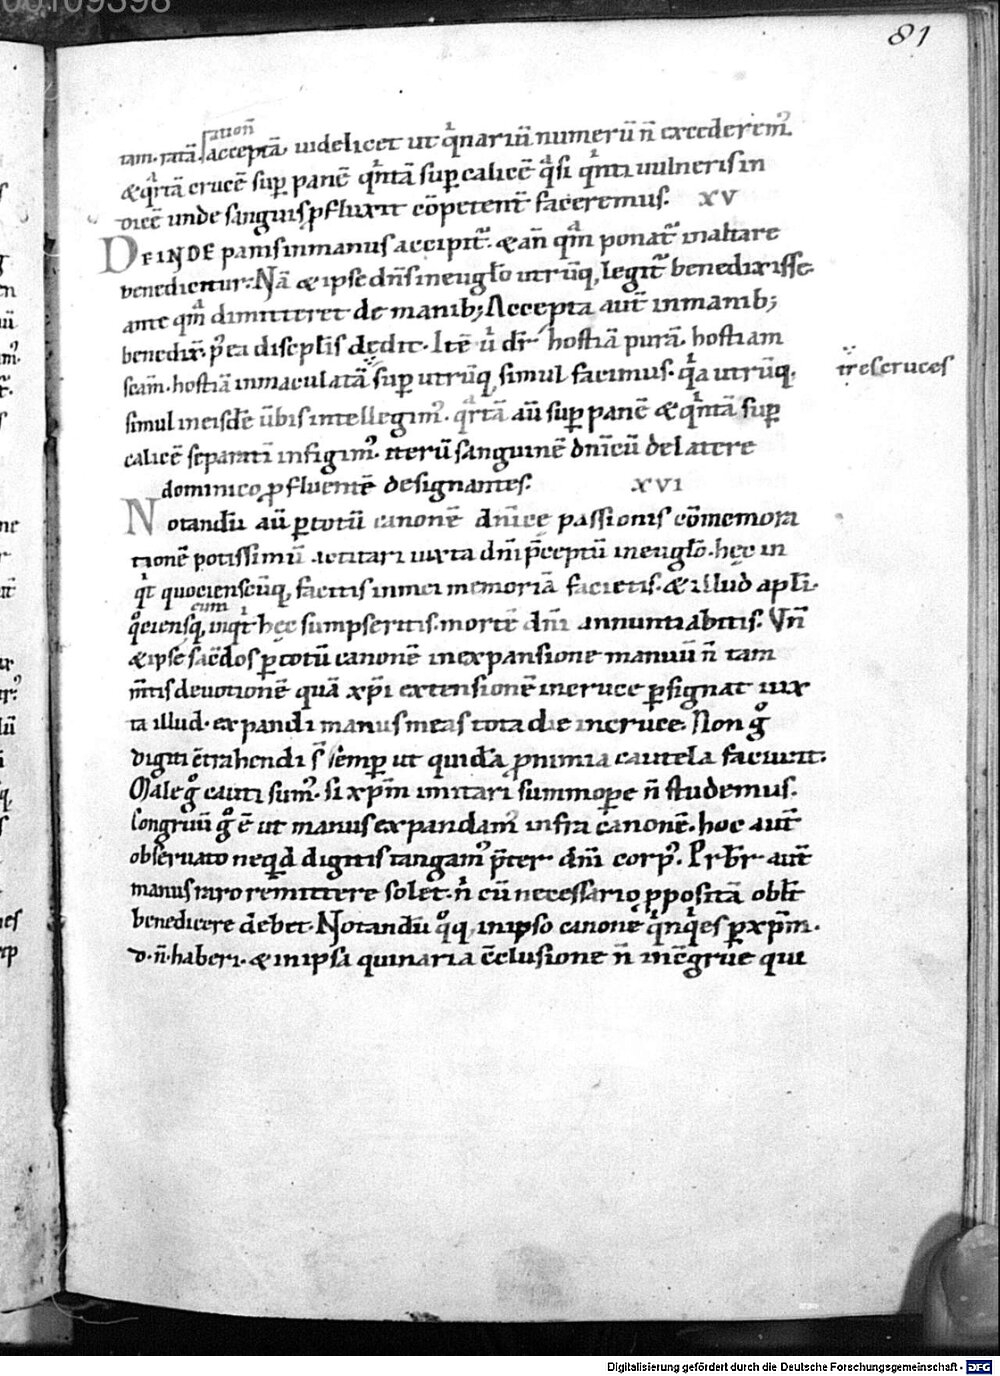 00109398
81
ationē
tam. ratā. acceptā. uidelicet ut qͥnariū numerū n̄ excederem᷒.
& qͣrtā crucē sup̱ panē qͥntā sup̱ calicē qͣsi qͥnti uulneris in
dicē unde sanguis ꝓfluxit cōpetent̄ faceremus. XV
DEINDE panis in manus accipit᷑. & an̄ qͣm ponat᷑ in altare
benedicitur. Nā & ipse dn̄s in eugl̄o utrūq, legit᷑ benedixisse
ante qͣm dimitteret de manib; Accepta aut̄ in manib;
benedix̄. p̄ea discipl̄is dedit. Itē ū dr̄ hostiā purā. hostiam
sc̄am. hostiā inmaculatā sup̱ utrūq, simul facimus. qͥa utrūq,
tres cruces
simul in eisdē ūbis intellegim᷒. qͣrtā aū sup̱ panē & qͥntā sup̱
calicē separatī infigim᷒. iterū sanguinē dn̄icū de latere
dominico ꝓfluentē designantes. XVI
Notandū aū ꝑ totū canonē dn̄ice passionis cōmemora
tionē potissimū actitari iuxta dn̄i p̄ceptū in eugl̄o. hec in
qͥt quociensc̄uq, facitis in mei memoriā facietis. & illud apl̄i.
cum
qͦciensq, inqͥt hęc sumpseritis. mortē dn̄i annuntiabitis. Vn̄
& ipse sac̄dos ꝑ totū canonē in expansione manuū n̄ tam
m̄tis deuotionē quā xp̄i extensionē in cruce ꝑsignat iux
ta illud. expandi manus meas tota die in cruce. Non gͦ
digiti c̄trahendi s̄ sēmp̱ ut quidā ꝓ nimia cautela faciunt.
Male gͦ cauti sum᷒. si xp̄m imitari summoꝑe n̄ studemus.
Congruū gͦ ē ut manus expandam᷒ infra canonē. hoc aut̄
obseruato neqd̄ digitis tangam᷒ p̄ter dn̄i corp᷒. Prb̄r aut̄
manus raro remittere solet. n̄ cū necessario ꝓpositā obl̄t
benedicere debet. Notandū qͦq, in ipso canone qͥnqͥes ꝑ xp̄m.
d. n̄. haberi. & in ipsa quinaria c̄clusione n̄ inc̄grue qui
Digitalisierung gefördert durch die Deutsche Forschungsgemeinschaft - DFG